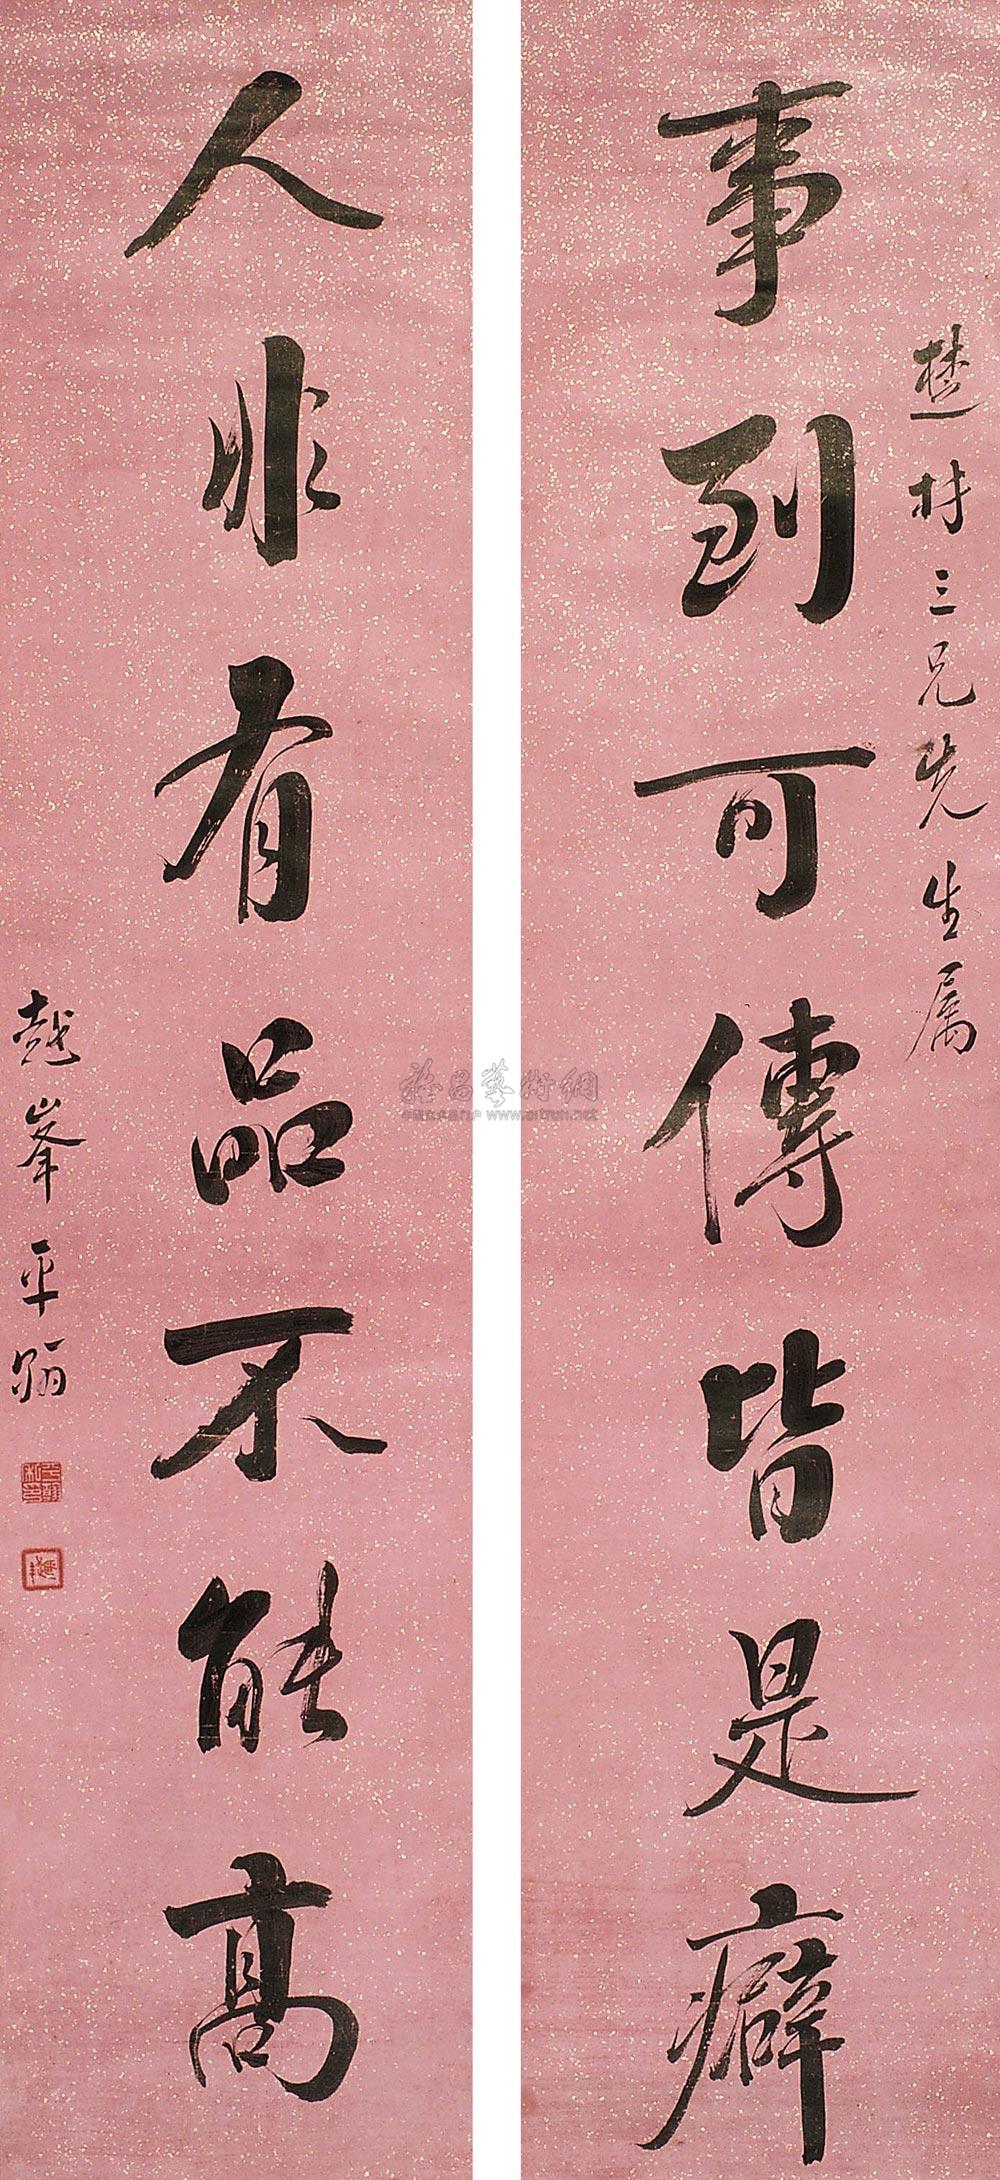 事到可傳皆是癖
楚村三兄先生属
人非有品不能高
越峯平翰
雅昌藝術網
www.artron.net